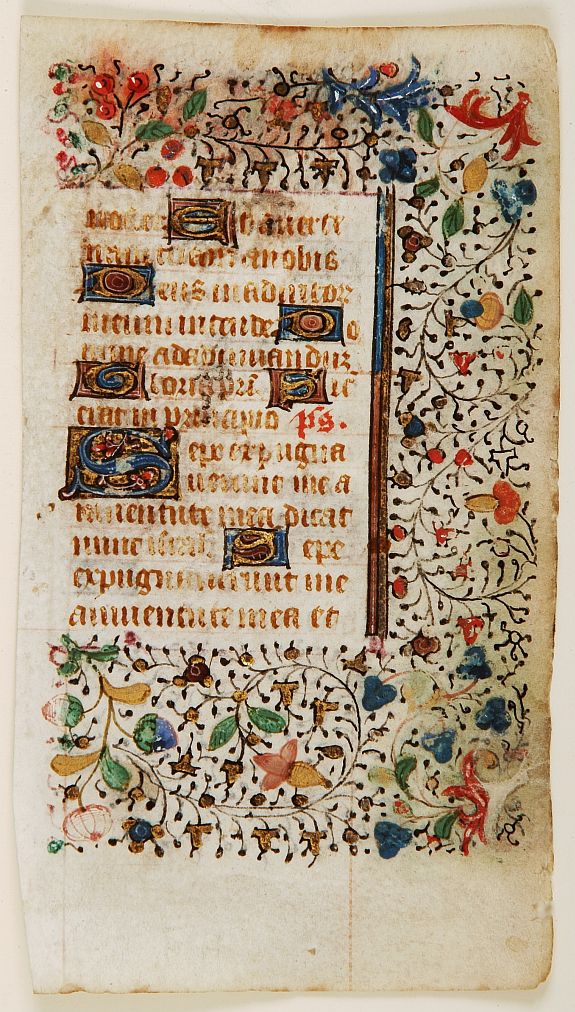 noster Et auerte
iram tuam a nobis
Deus in adiutor
meum intende Do
mine ad adiuuandum
Gloria pri. Sic
erat in principio ps.
Sepe expugna
uerunt me a
iuuentute mea dicat
nunc israel Sepe
expugnauerunt me
a iuuentute mea et